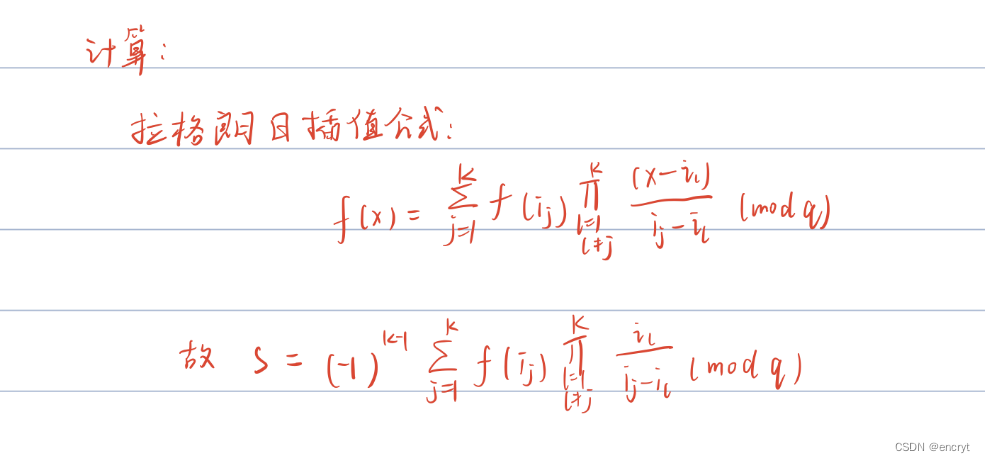 计算:
拉格朗日插值公式:
f(x) = \sum_{j=1}^{k} f(i_j) \prod_{l=1, l≠j}^{k} \frac{(x-i_l)}{i_j-i_l} (mod q)
故 S = (-1)^{k-1} \sum_{j=1}^{k} f(i_j) \prod_{l=1, l≠j}^{k} \frac{i_l}{i_j-i_l} (mod q)
CSDN @encryt